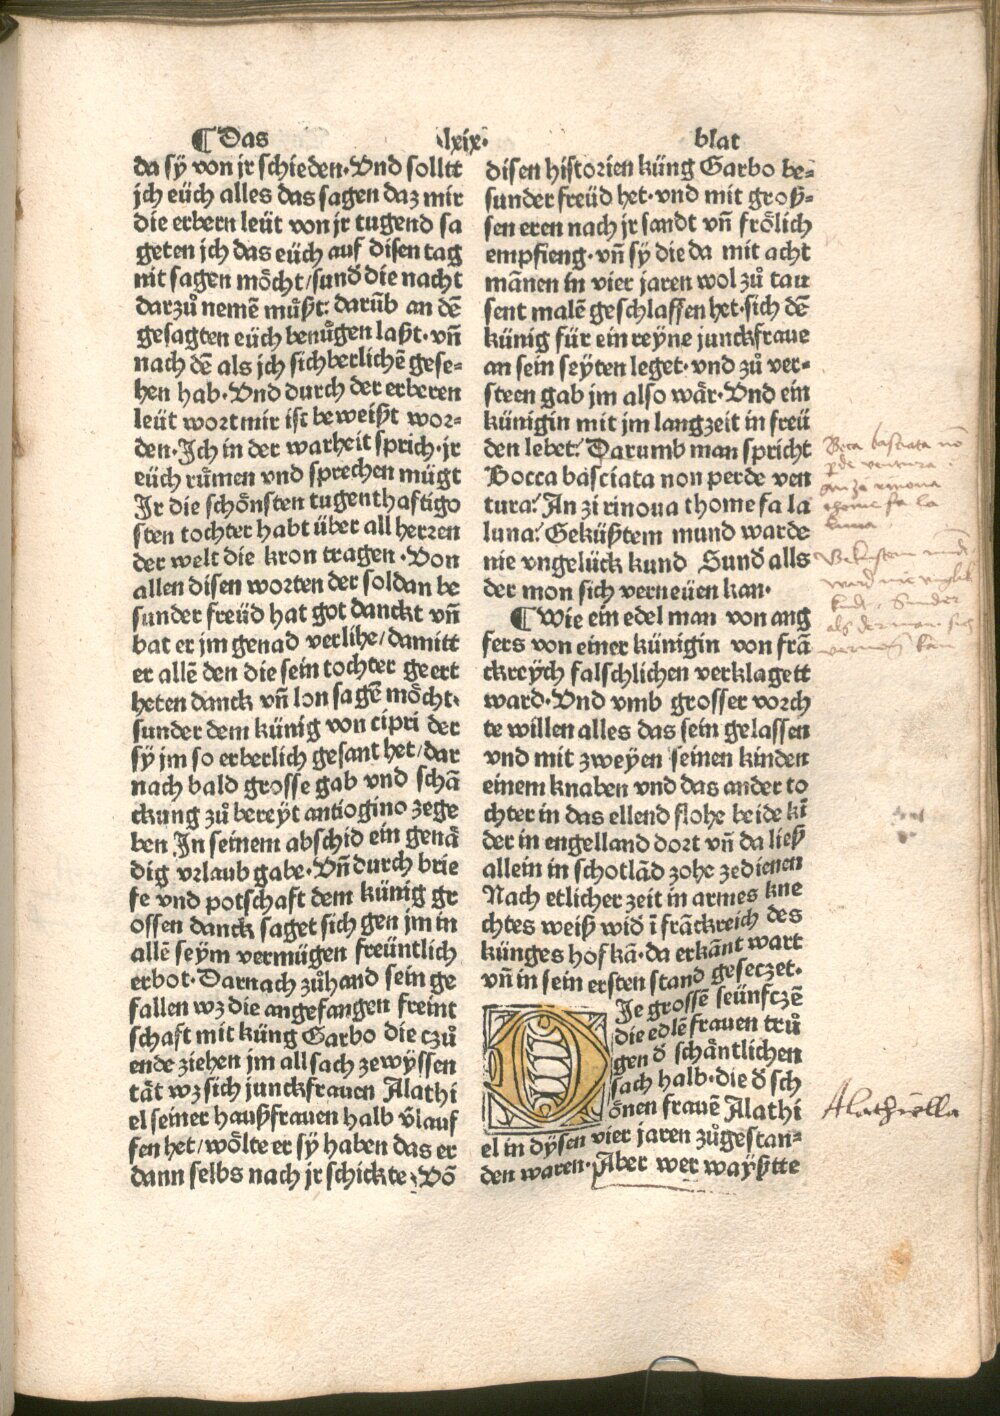 ¶ Das ·lxix· blat
da sÿ von jr schieden·Vnd solltt
jch eüch alles das sagen daz mir
die erbern leüt von jr tugend sa
geten jch das eüch auf disen tag
nit sagen möcht/sunđ die nacht
darzů nemē müßt: darūb an dē
gesagten eüch benůgen laßt·vn̄
nach dē als jch sichberlichē gese-
hen hab·Vnd durch der erberen
leüt wort mir ist beweißt wor-
den·Ich in der warheit sprich·jr
eüch rümen vnd sprechen mügt
Ir die schönsten tugenthaftigo
sten tochter habt über all herzen
der welt die kron tragen·Von
allen disen worten der soldan be
sunder freüd hat got danckt vn̄
bat er jm genad verlihe/damitt
er allē den die sein tochter geert
heten danck vn̄ lon sagē möcht·
sunder dem künig von cipri der
sÿ jm so erberlich gesant het/dar
nach bald grosse gab vnd schā
ckung zů bereyt antiogino zege
ben In seinem abschid ein genä
dig vrlaub gabe·Vn̄ durch brie
fe vnd potschaft dem künig gr
ossen danck saget sich gen jm in
allē seÿm vermügen freüntlich
erbot·Darnach zůhand sein ge
fallen wz die angefangen freint
schaft mit küng Garbo die czů
ende ziehen jm all sach zewÿssen
tät wz sich junckfrauen Alathi
el seiner haußfrauen halb v̄lauf
fen het/wölte er sÿ haben das er
dann selbs nach jr schickte·Vō
disen historien küng Garbo be-
sunder freüd het·vnd mit groß-
sen eren nach jr sandt vn̄ frölich
empfieng·vn̄ sÿ die da mit acht
mānen in vier jaren wol zů tau
sent malē geschlaffen het·sich dē
künig für ein reÿne junckfraue
an sein seÿten leget·vnd zů ver-
steen gab jm also wär·Vnd ein
künigin mit jm langzeit in freü
den lebet: Darumb man spricht
Bocca basciata non perde ven
tura: An zi rinoua thome fa la
luna: Geküßtem mund warde
nie vngelück kund Sunđ alls
der mon sich verneüen kan·
¶ Wie ein edel man von ang
fers von einer künigin von frā
ckreÿch falschlichen verklagett
ward·Vnd vmb grosser vorch
te willen alles das sein gelassen
vnd mit zweÿen seinen kinden
einem knaben vnd das ander to
chter in das ellend flohe beide kī
der in engelland dort vn̄ da ließ
allein in schotlād zohe zedienen
Nach etlicher zeit in armes kne
chtes weiß wid ī frāckreich des
künges hof kā·da erkānt wart
vn̄ in sein ersten stand geseczet·
DIe grossē seünfczē
die edlē frauen trů
gen đ schäntlichen
sach halb·die đ sch
önen frauē Alathi
el in dÿsen vier jaren zůgestan-
den waren·Aber wer waÿßtte
Bocca basciata nō
p̱de ventura
anza rinoua
thome fa la
luna
ward nie vnglük
kundt. Sunder
als der mon sich
kan
Alathiella